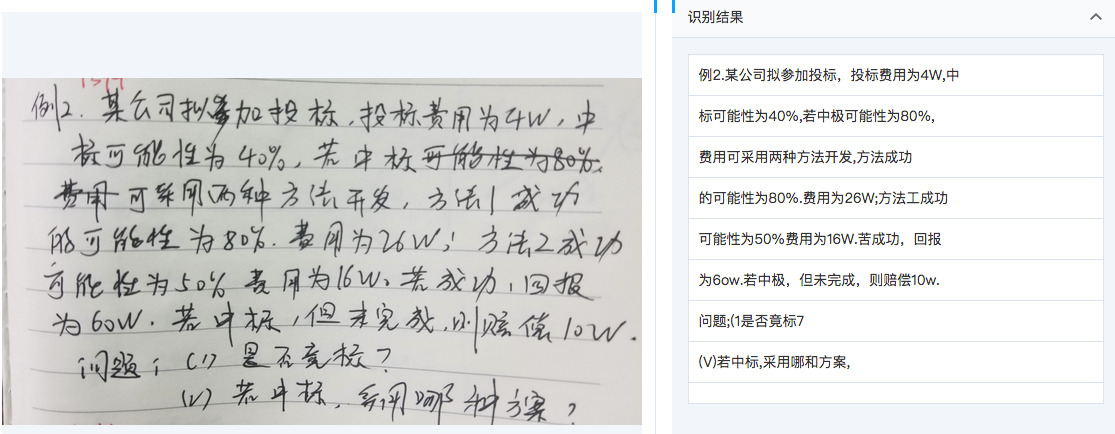 例2. 某公司拟参加投标，投标费用为4W，中
标可能性为40%，若中标可能性为80%.
费用可采用两种方法开发，方法1成功
的可能性为80%. 费用为26W；方法2成功
可能性为50% 费用为16W。若成功，回报
为60W. 若中标，但未完成，则赔偿10W.
问题；(1) 是否竞标？
(2) 若中标，采用哪种方案？
识别结果
例2.某公司拟参加投标，投标费用为4W,中
标可能性为40%,若中极可能性为80%,
费用可采用两种方法开发,方法成功
的可能性为80%.费用为26W;方法工成功
可能性为50%费用为16W.苦成功，回报
为6ow.若中极，但未完成，则赔偿10w.
问题;(1是否竟标7
(V)若中标,采用哪和方案,